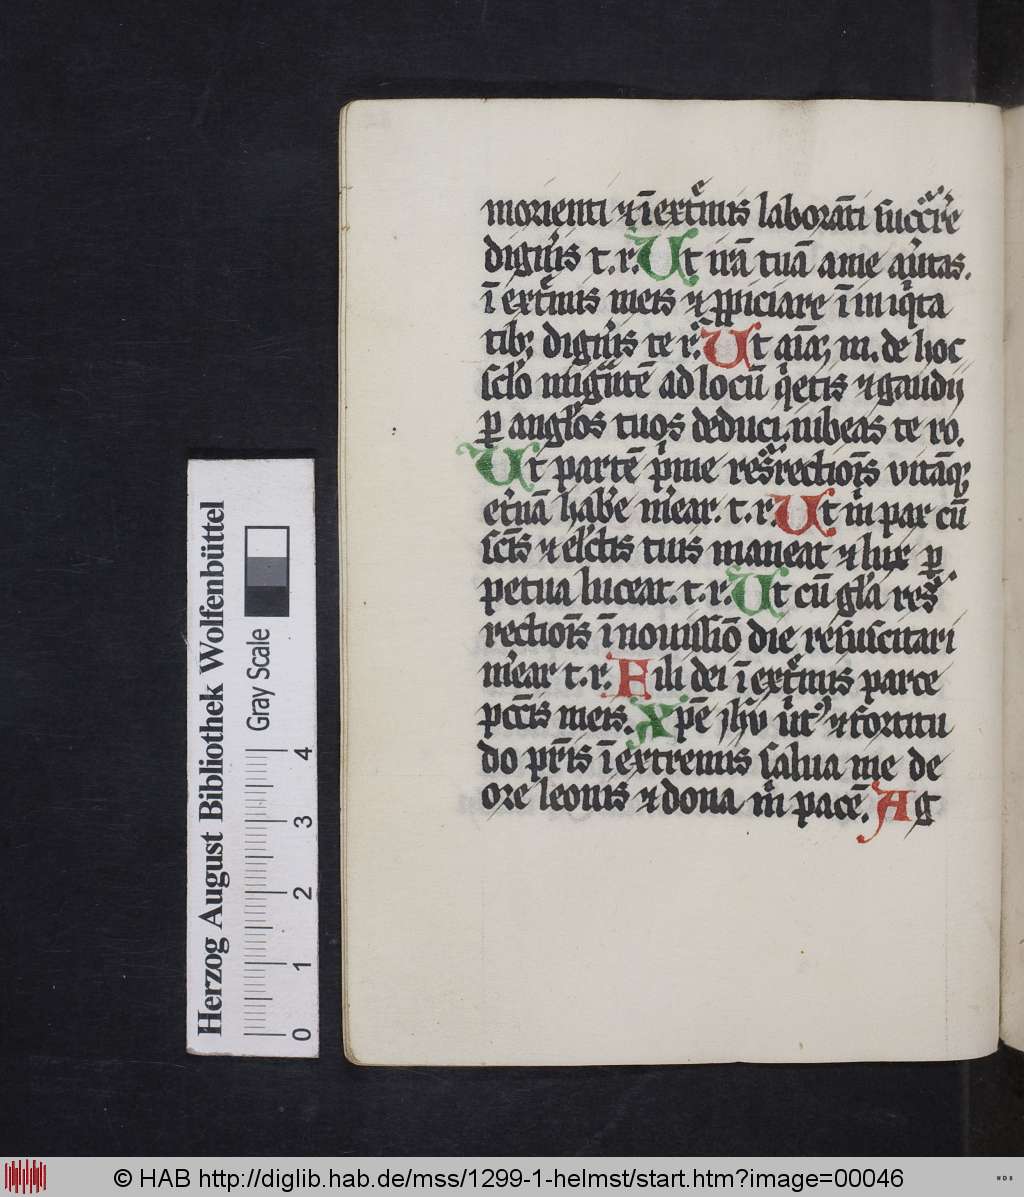 morienti ⁊ ī extͥmis laborāti succᷓre
digͥis t. r. Ut irā tuā a me aũtas.
ī extͥmis meis ⁊ ꝓpiciare ī iniqͥta
tibꝫ digneris te r. Ut aīaꝫ m. de hoc
sclo migᷓntē ad locū qͥetis ⁊ gaudij
ꝑ anglos tuos deduci iubeas te ro.
Ut partē pͥme resᷓrectiōis vitāqꝫ
et̾nā habe m̾ear. t. r. Ut in par cū
scīs ⁊ elctis tuis maneat ⁊ lux ꝑ
petua luceat. t. r. Ut cū gla resᷓ
rectiōis ī nouissīo die resuscitari
m̾ear t. r. Fili dei ī extͥmis parce
pccīs meis. Xpē jhu ũtꝰ ⁊ fortitu
do pr̄is ī extremis salua me de
ore leonis ⁊ dona mͥ pacē. Ag
Herzog August Bibliothek Wolfenbüttel
Gray Scale
0 1 2 3 4
© HAB http://diglib.hab.de/mss/1299-1-helmst/start.htm?image=00046